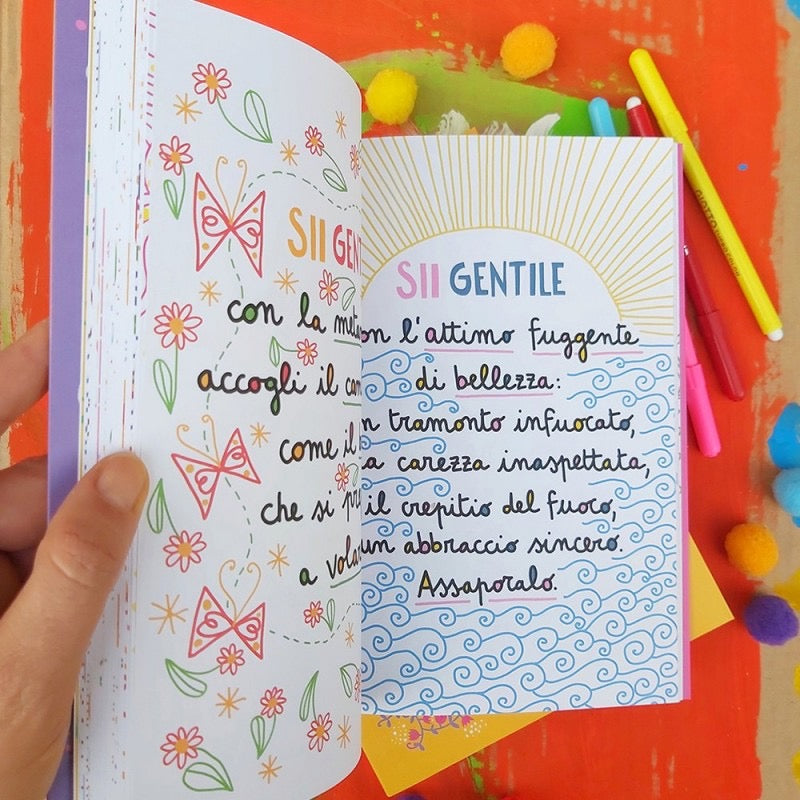 SII GEN
con la meta
accogli il
come il
che si
a volar
SII GENTILE
on l'attimo fuggente
di bellezza:
n tramonto infuocato,
a carezza inaspettata,
il crepitio del fuoco,
un abbraccio sincero.
Assaporalo.
GIOTTO